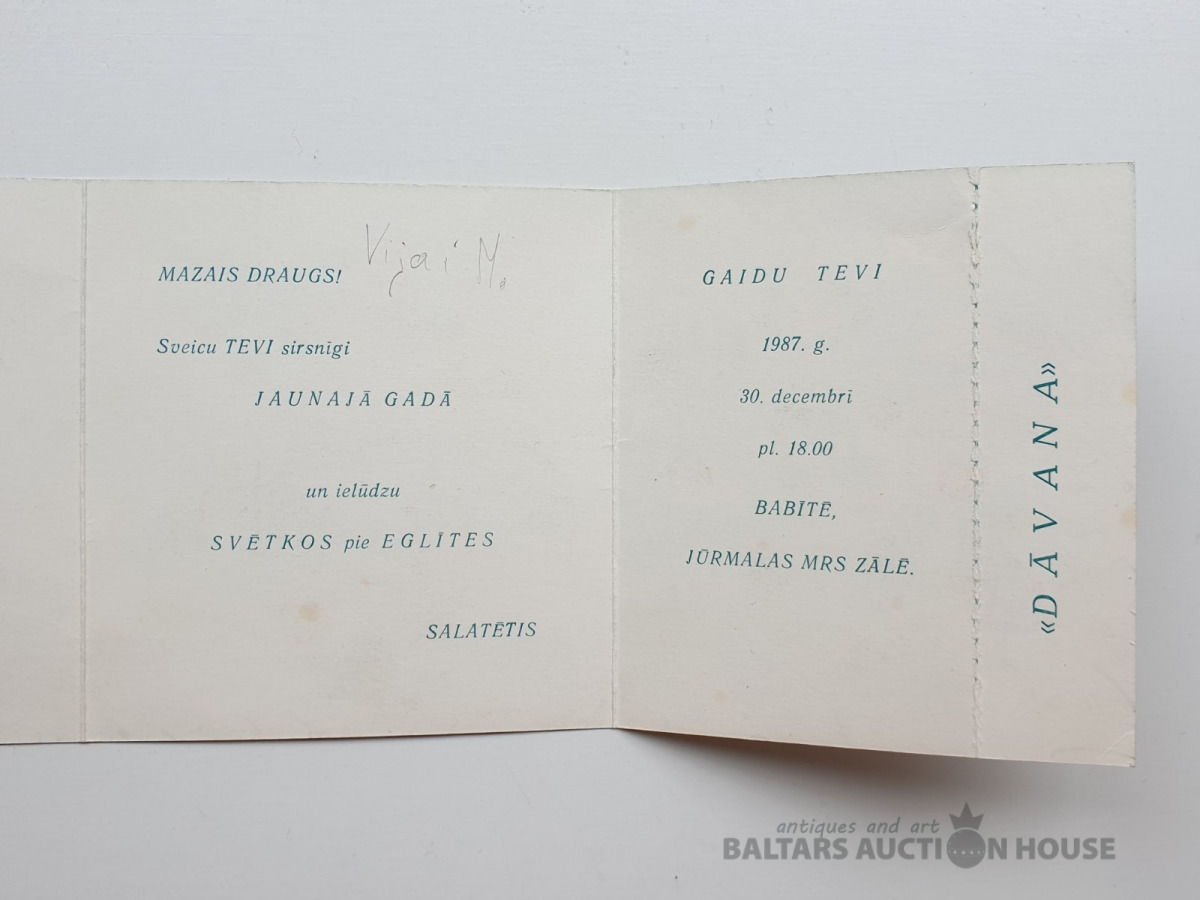 MAZAIS DRAUGS! Vijai M.
Sveicu TEVI sirsnīgi
JAUNAJĀ GADĀ
un ielūdzu
SVĒTKOS pie EGLĪTES
SALATĒTIS
GAIDU TEVI
1987. g.
30. decembrī
pl. 18.00
BABĪTĒ,
JŪRMALAS MRS ZĀLĒ.
«DĀVANA»
antiques and art
BALTARS AUCTION HOUSE